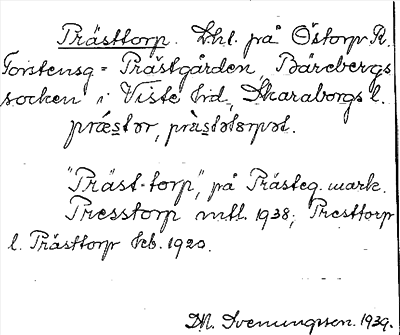 Prästtorp. Lhl. på Östorp R.
Torstensg = Prästgården, Bärebergs
socken i Viste hd, Skaraborgs l.
præstər, præ̀stətɔrpət.
"Präst-torp", på Prästeg. mark.
Presstorp mtl. 1938; Presttorp
l. Prästtorp Feb. 1920.
D.N. Svenungsson. 1939.